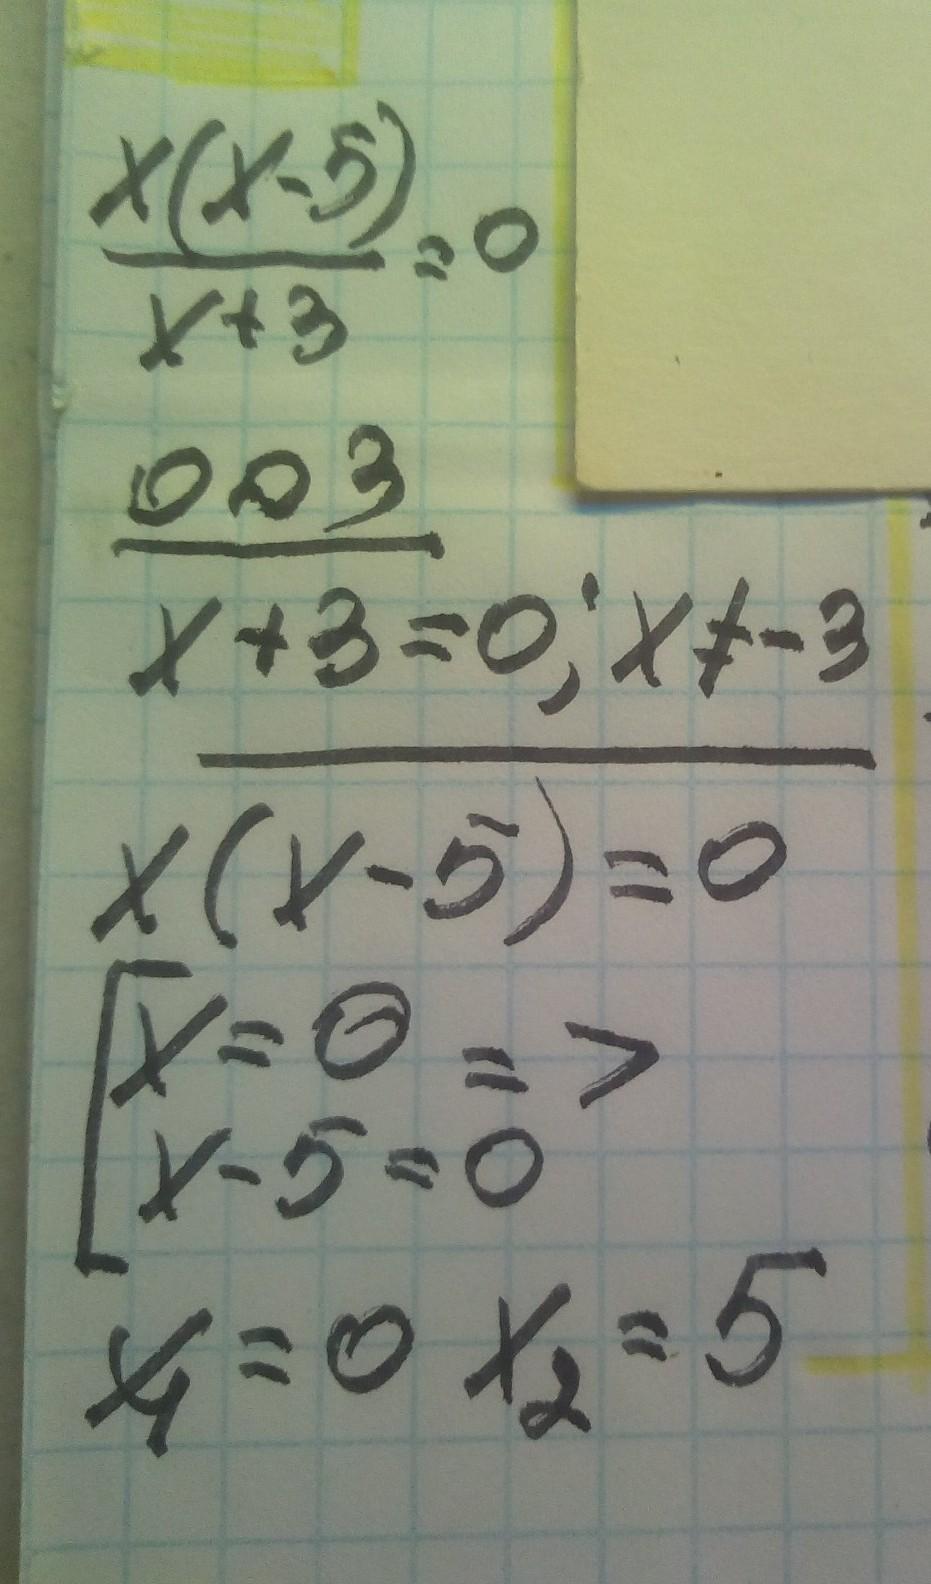 x(x-5)
/(x+3) =0
ОДЗ
x+3=0; x≠-3
x(x-5)=0
[x=0 =>
x-5=0
x₁=0 x₂=5